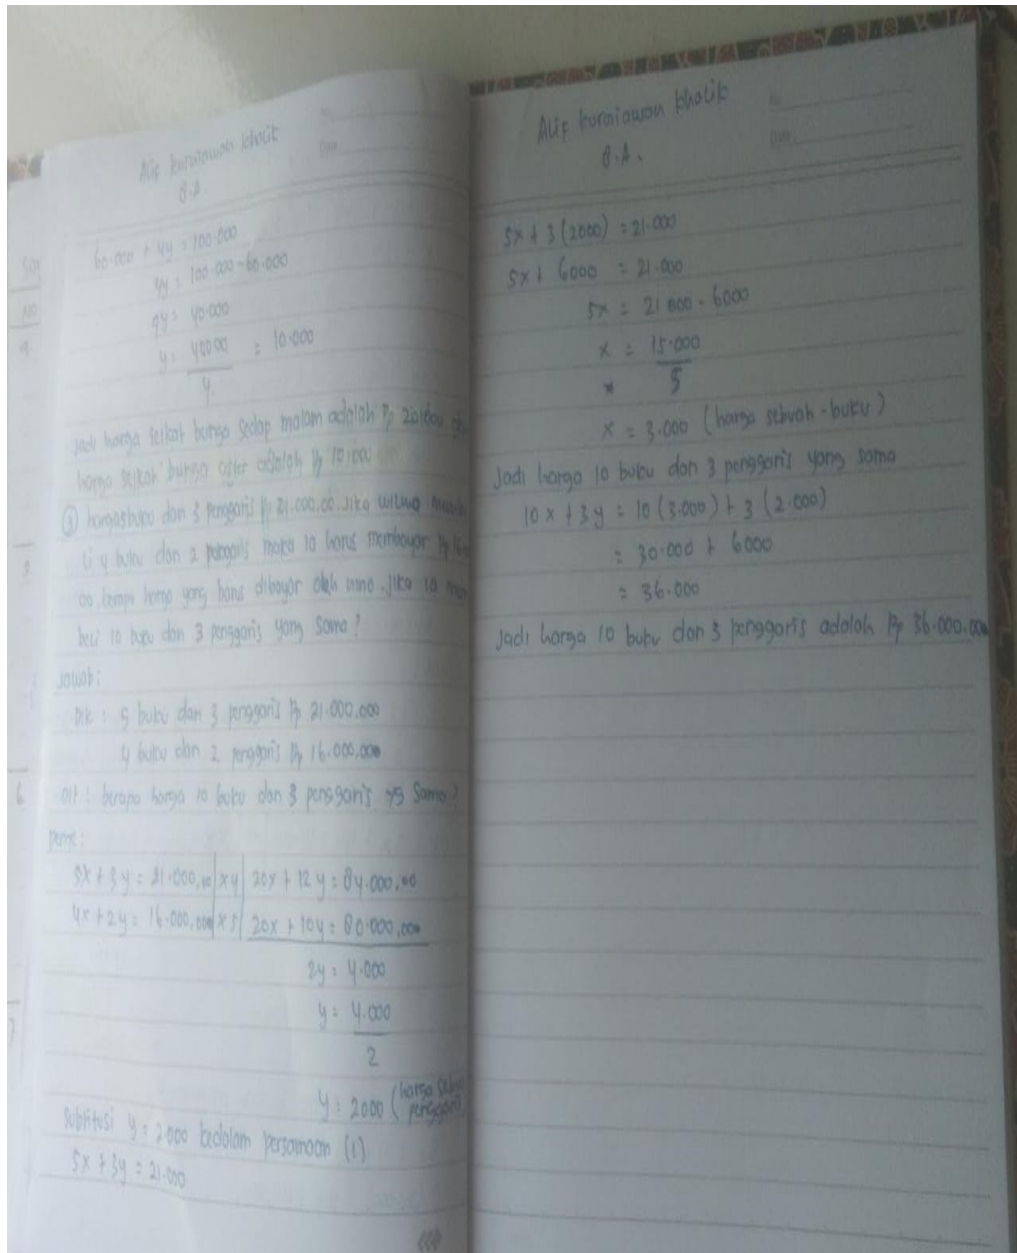 Alif kurniawan kholik
8.A.
60.000 + 4y = 100.000
4y = 100.000 - 60.000
4y = 40.000
y = 40000 = 10.000
4
Jadi harga seikat bunga sedap malam adalah Rp
harga seikat bunga aster adalah Rp 10.000
③ harga 5 buku dan 3 penggaris Rp 21.000,00. Jika
li 4 buku dan 2 penggaris maka ia harus membayar Rp
00. berapa harga yang harus dibayar oleh . Jika ia
beli 10 buku dan 3 penggaris yang sama?
Jawab:
Dik : 5 buku dan 3 penggaris Rp 21.000.000
4 buku dan 2 penggaris Rp 16.000,000
Dit : berapa harga 10 buku dan 3 penggaris yg sama?
5x + 3y = 21.000,00 | x4 | 20x + 12y = 84.000,00
4x + 2y = 16.000,000 | x5 | 20x + 10y = 80.000,000
2y = 4.000
y = 4.000
2
y = 2000 (harga
penggaris
Subtitusi y = 2000 kedalam persamaan (1)
5x + 3y = 21.000
Alif kurniawan kholik
8.A.
5x + 3 (2000) = 21.000
5x + 6000 = 21.000
5x = 21000 - 6000
x = 15.000
5
x = 3.000 (harga sebuah - buku)
Jadi harga 10 buku dan 3 penggaris yang sama
10x + 3y = 10 (3.000) + 3 (2.000)
= 30.000 + 6000
= 36.000
Jadi harga 10 buku dan 3 penggaris adalah Rp 36.000.000